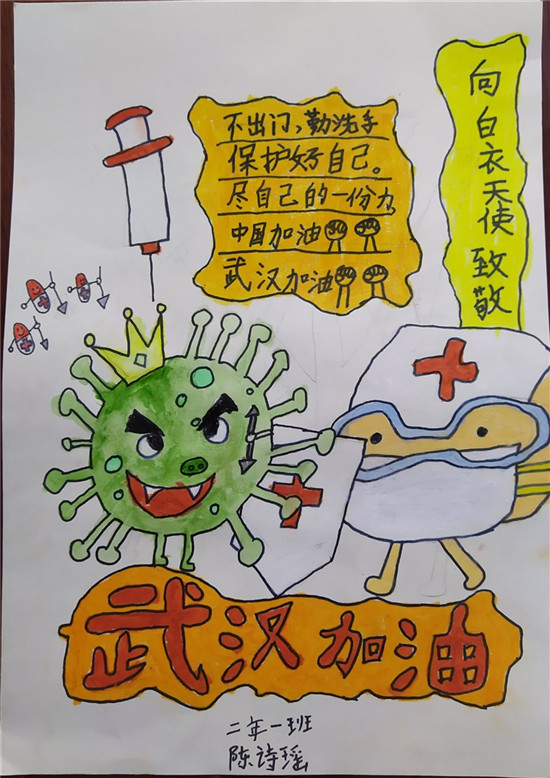 不出门，勤洗手
保护好自己。
尽自己的一份力，
中国加油
武汉加油
向白衣天使致敬
武汉加油
二年一班
陈诗瑶